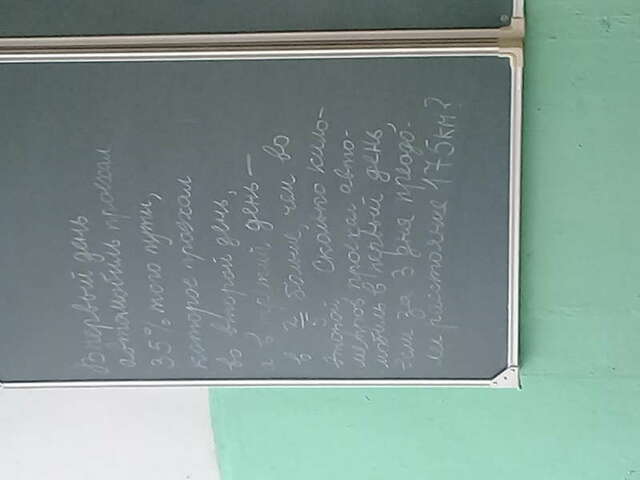 В первый день
автомобиль проехал
35% того пути,
которое проехал
во второй день,
а в третий день —
в 2 больше, чем во
второй Сколько кило-
метров проехал авто-
мобиль в первый день,
если за 3 дня преодо-
лел расстояние 175км?